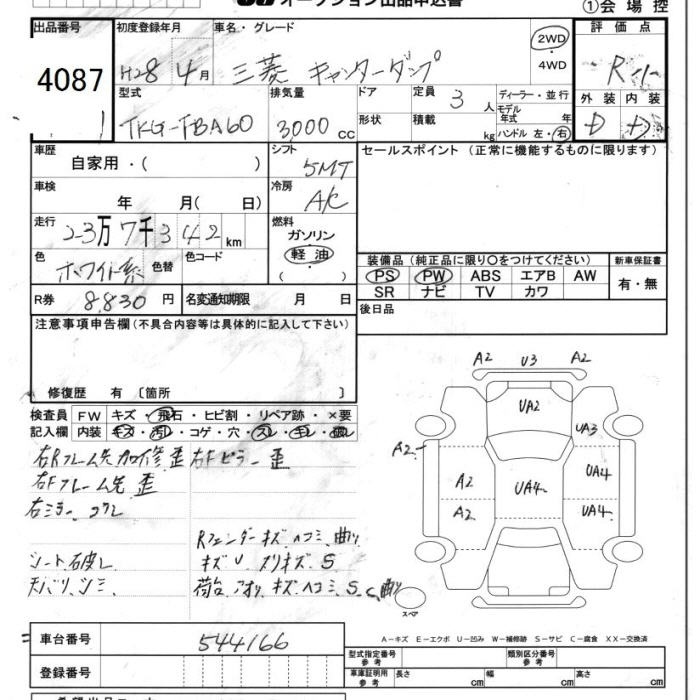 オークション出品申込書
①会場控
出品番号 初度登録年月 車名・グレード 評価点
4087 H28年4月 三菱 キャンターダンプ 2WD・4WD R
型式 排気量 ドア 定員 3人 ディーラー・並行 外装 内装
TKG-FBA60 3,000cc 形状 積載 kg モデル年式 年 ハンドル 左・右 D D
車歴 自家用・( ) シフト 5MT セールスポイント(正常に機能するものに限ります)
車検 年 月( 日) 冷房 A/C
走行 23万7千342km 燃料 ガソリン 軽油 ( )
色 ホワイト系 色替 色コード
装備品(純正品に限り○をつけてください) 新車保証書
PS PW ABS エアB AW 有・無
SR ナビ TV カワ
R券 8,830円 名変通知期限 月 日 後日品
注意事項申告欄(不具合内容等は具体的に記入して下さい)
修復歴 有〔箇所 〕
検査員 FW キズ・飛石・ヒビ割・リペア跡・×要
記入欄 内装 キズ・汚レ・コゲ・穴・スレ・キレ・破レ
右Rフレーム先加修歪 右Fピラー歪
右Fフレーム先歪
右ミラー
Rフェンダーキズヘコミ、曲り
シート破レ キズ U スリキズ S
天バリ、シミ 荷台、アオリ、キズヘコミ、S、C、曲り
A2 U3 A2
UA2
UA3
A2
A2 UA4 UA4
A2 UA4
スペア
A－キズ E－エクボ U－凹み W－補修跡 S－サビ C－腐食 XX－交換済
車台番号 544166 型式指定番号 参考 類別区分番号 参考
登録番号 車庫証明用 参考 長さ cm 幅 cm 高さ cm